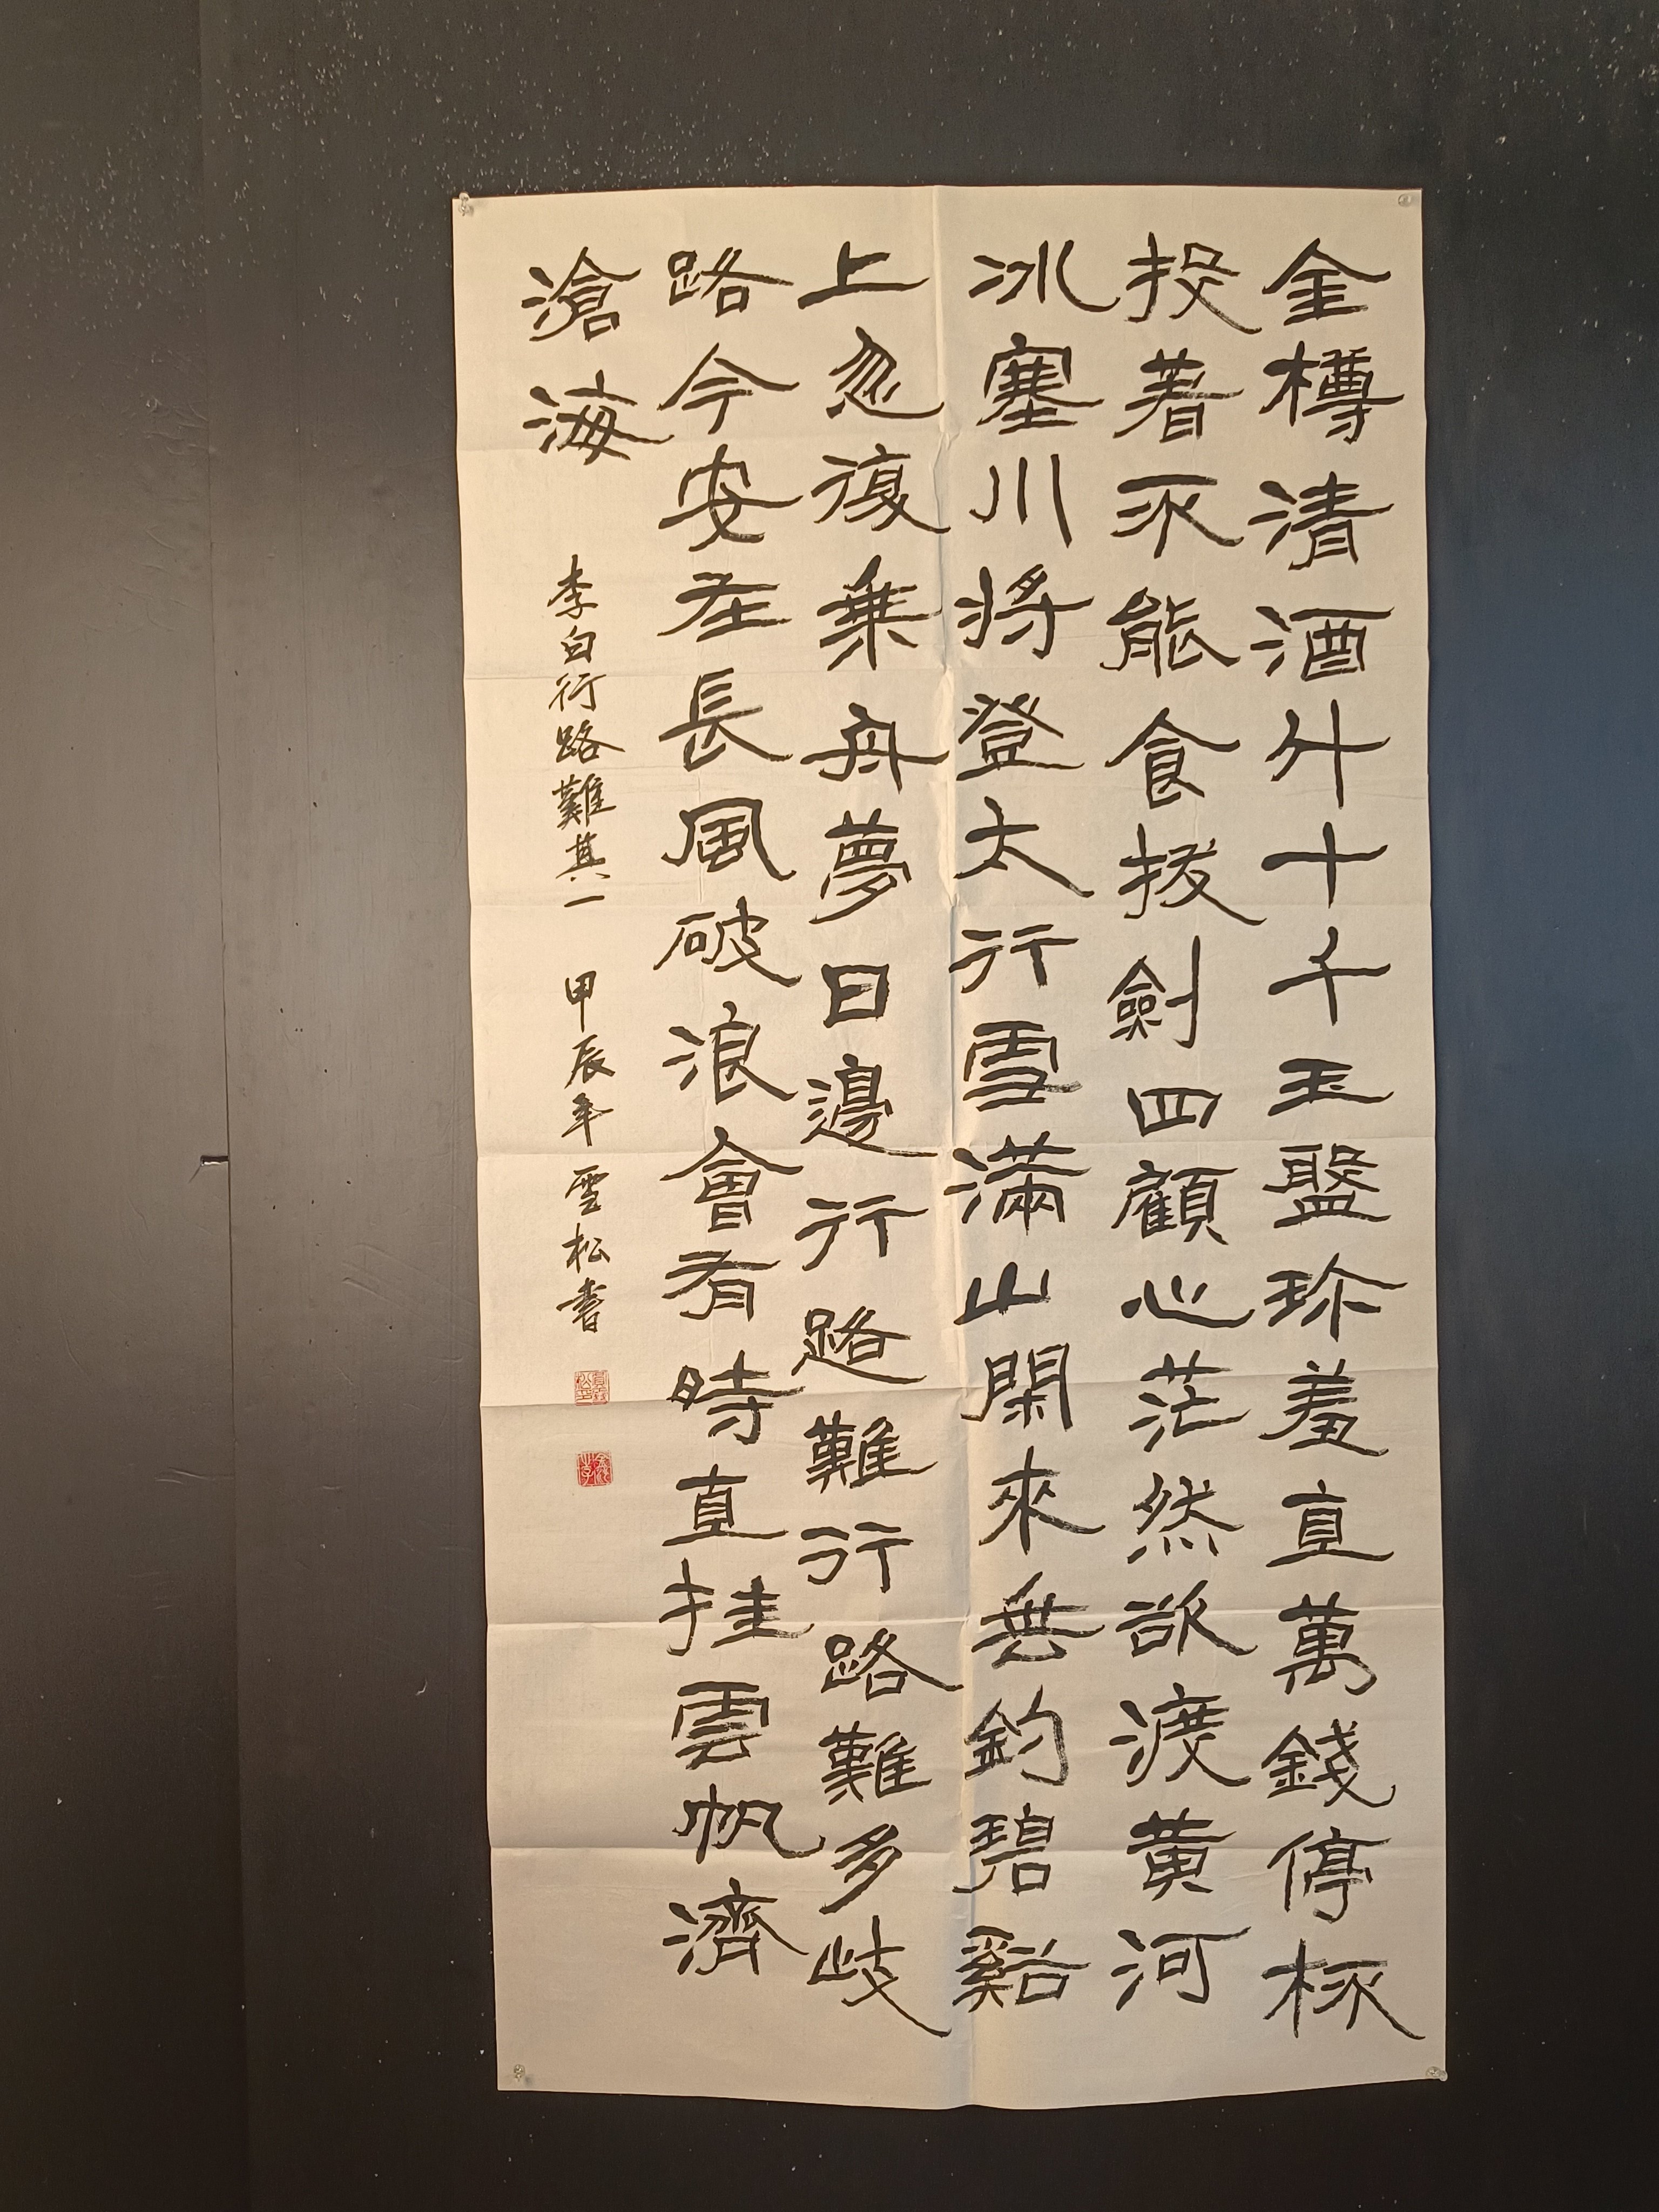 金樽清酒斗十千玉盤珎羞直萬錢停杯
投著不能食拔劍四顧心茫然欲渡黄河
冰塞川将登太行雪滿山閑來無釣碧谿
上忽復乘舟夢日邊行路難行路難多岐
路今安在長風破浪會有時直挂雲帆濟
滄海
李白行路難其一 甲辰年 雲松書